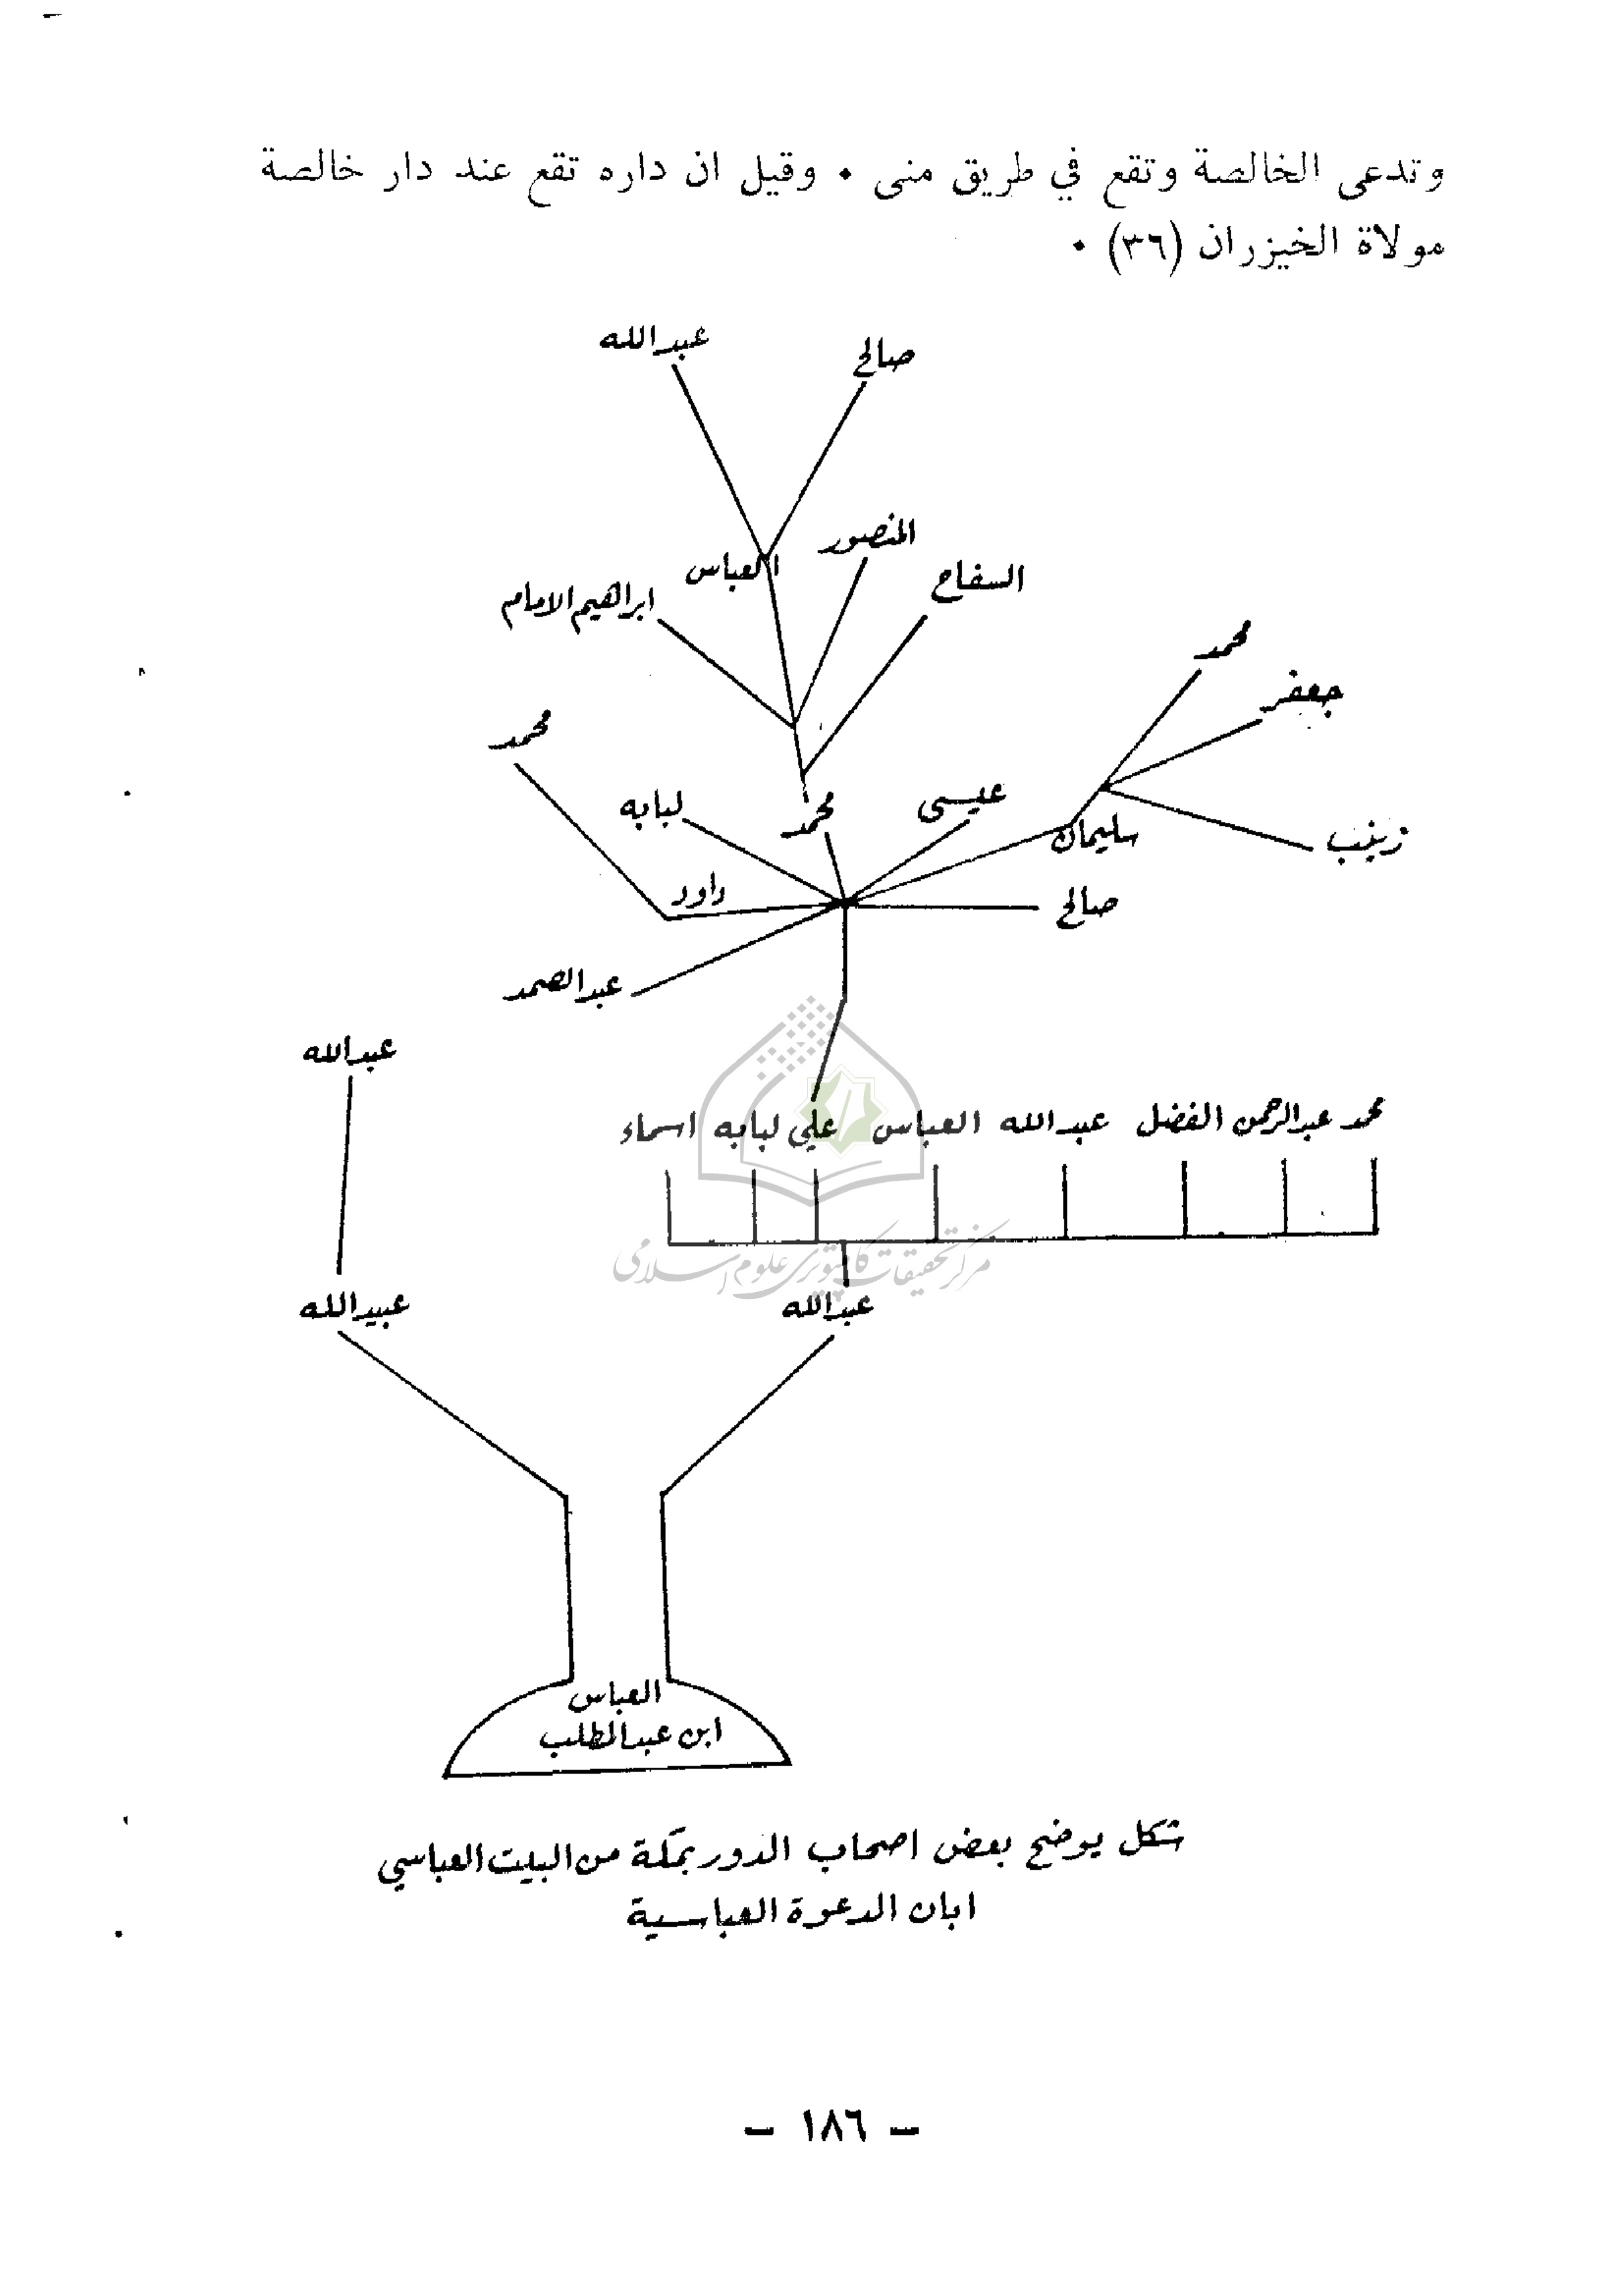 وتدعى الخالصة وتقع في طريق منى • وقيل ان داره تقع عند دار خالصة
مولاة الخيزران (٣٦) •
عبدالله
صالح
المنصور
العباس
السفاح
ابراهيم الامام
محمد
جعفر
محمد
عيسى
لبابه
محمد
سليمان
زينب
داود
صالح
عبدالصمد
عبدالله
محمد عبدالرحمن الفضل عبدالله العباس علي لبابه اسماء
مركز تحقيقات كامپيوتري علوم اسلامي
عبدالله
عبيدالله
العباس
ابن عبدالمطلب
شكل يوضح بعض اصحاب الدور بمكة من البيت العباسي
ابان الدعوة العباسية
– ١٨٦ –